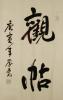 觀帖
庚寅年